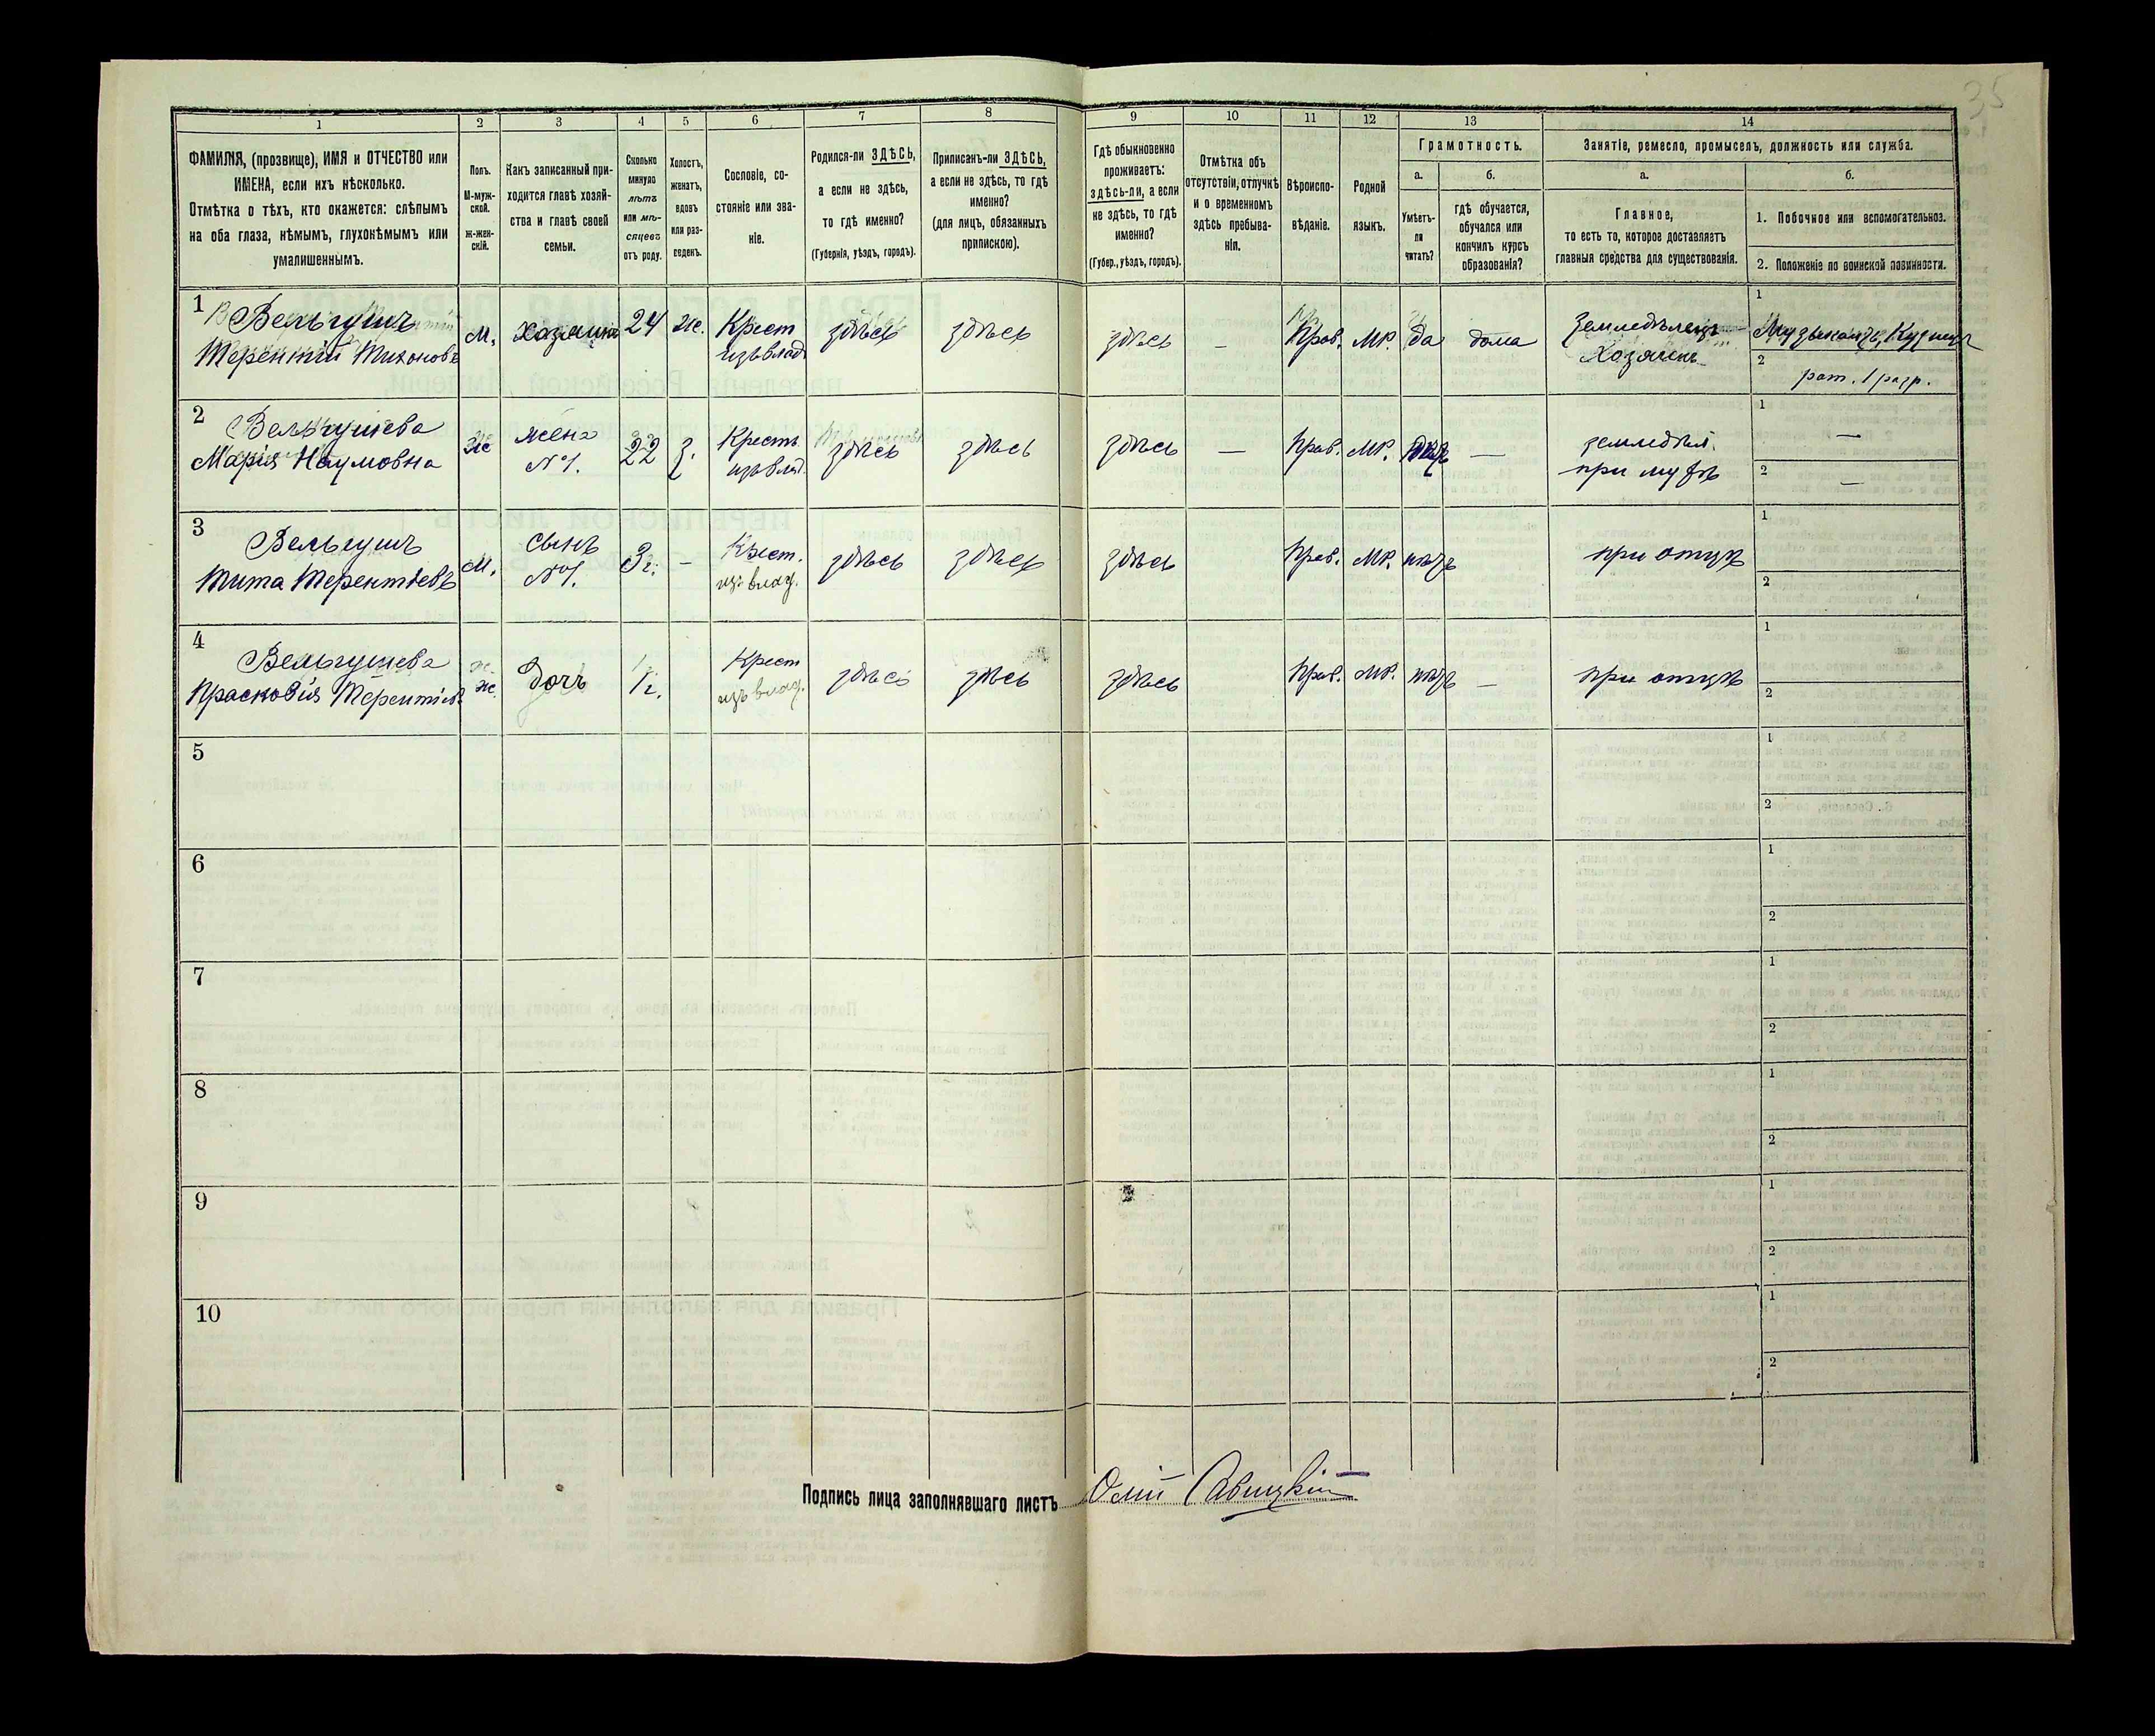 35
1
2
3
4
5
6
7
8
9
10
11
12
13
14
ФАМИЛІЯ, (прозвище), ИМЯ и ОТЧЕСТВО или
ИМЕНА, если ихъ нѣсколько.
Отмѣтка о тѣхъ, кто окажется: слѣпымъ
на оба глаза, нѣмымъ, глухонѣмымъ или
умалишеннымъ.
Полъ.
М-муж-
ской.
ж-жен-
скій.
Какъ записанный при-
ходится главѣ хозяй-
ства и главѣ своей
семьи.
Сколько
минуло
лѣтъ
или мѣ-
сяцевъ
отъ роду.
Холостъ,
женатъ,
вдовъ
или раз-
веденъ.
Сословіе, со-
стояніе или зва-
ніе.
Родился-ли ЗДѢСЬ,
а если не здѣсь,
то гдѣ именно?
(Губернія, уѣздъ, городъ).
Приписанъ-ли ЗДѢСЬ,
а если не здѣсь, то гдѣ
именно?
(для лицъ, обязанныхъ
припискою).
Гдѣ обыкновенно
проживаетъ:
здѣсь-ли, а если
не здѣсь, то гдѣ
именно?
(Губер., уѣздъ, городъ).
Отмѣтка объ
отсутствіи, отлучкѣ
и о временномъ
здѣсь пребыва-
ніи.
Вѣроиспо-
вѣданіе.
Родной
языкъ.
Грамотность.
а.
Умѣетъ-
ли
читать?
б.
гдѣ обучается,
обучался или
кончилъ курсъ
образованія?
Занятіе, ремесло, промыселъ, должность или служба.
а.
Главное,
то есть то, которое доставляетъ
главныя средства для существованія.
б.
1. Побочное или вспомогательное.
2. Положеніе по воинской повинности.
1 Вельгушъ
Терентій Тихоновъ
м.
хозяинъ
24
ж.
Крест
изъ влад
здѣсь
здѣсь
здѣсь
–
Прав.
МР.
да
дома
земледѣлецъ
Хозяинъ
1
Музыкантъ, Кузнецъ
2
рат. 1 разр.
2 Вельгушева
Марія Наумовна
ж
жена
№1.
22
з.
Крестъ
изъ влад.
здѣсь
здѣсь
здѣсь
—
Прав.
МР.
—
земледѣл.
при мужѣ
1
—
2
—
3 Вельгушъ
Тита Терентіевъ
м.
сынъ
№1.
3 г.
–
Крест.
из влад.
здѣсь
здѣсь
здѣсь
Прав.
МР.
нѣтъ
при отцѣ
1
2
4 Вельгушева
Прасковія Терентіев
ж.
дочь
1 г.
Крест
изъ влад.
здѣсь
здѣсь
здѣсь
Прав.
МР.
нѣтъ
—
при отцѣ
1
2
5
1
2
6
1
2
7
1
2
8
1
2
9
1
2
10
1
2
Подпись лица заполнявшаго листъ Савицкій